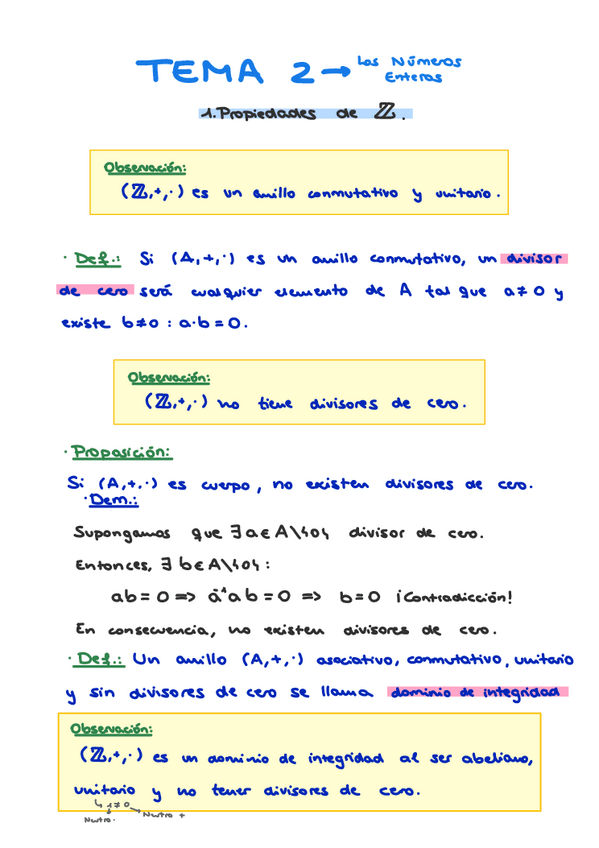 TEMA 2 → Los Números
Enteros
1. Propiedades de ℤ.
Observación:
(ℤ,+,·) es un anillo conmutativo y unitario.
· Def.: Si (A,+,·) es un anillo conmutativo, un divisor
de cero será cualquier elemento de A tal que a≠0 y
existe b≠0 : a·b=0.
Observación:
(ℤ,+,·) no tiene divisores de cero.
· Proposición:
Si (A,+,·) es cuerpo, no existen divisores de cero.
· Dem.:
Supongamos que ∃a∈A\{0} divisor de cero.
Entonces, ∃ b∈A\{0} :
ab=0 => a⁻¹ab=0 => b=0 ¡Contradicción!
En consecuencia, no existen divisores de cero.
· Def.: Un anillo (A,+,·) asociativo, conmutativo, unitario
y sin divisores de cero se llama dominio de integridad
Observación:
(ℤ,+,·) es un dominio de integridad al ser abeliano,
unitario y no tener divisores de cero.
↳ 1≠0 → Neutro +
Neutro ·